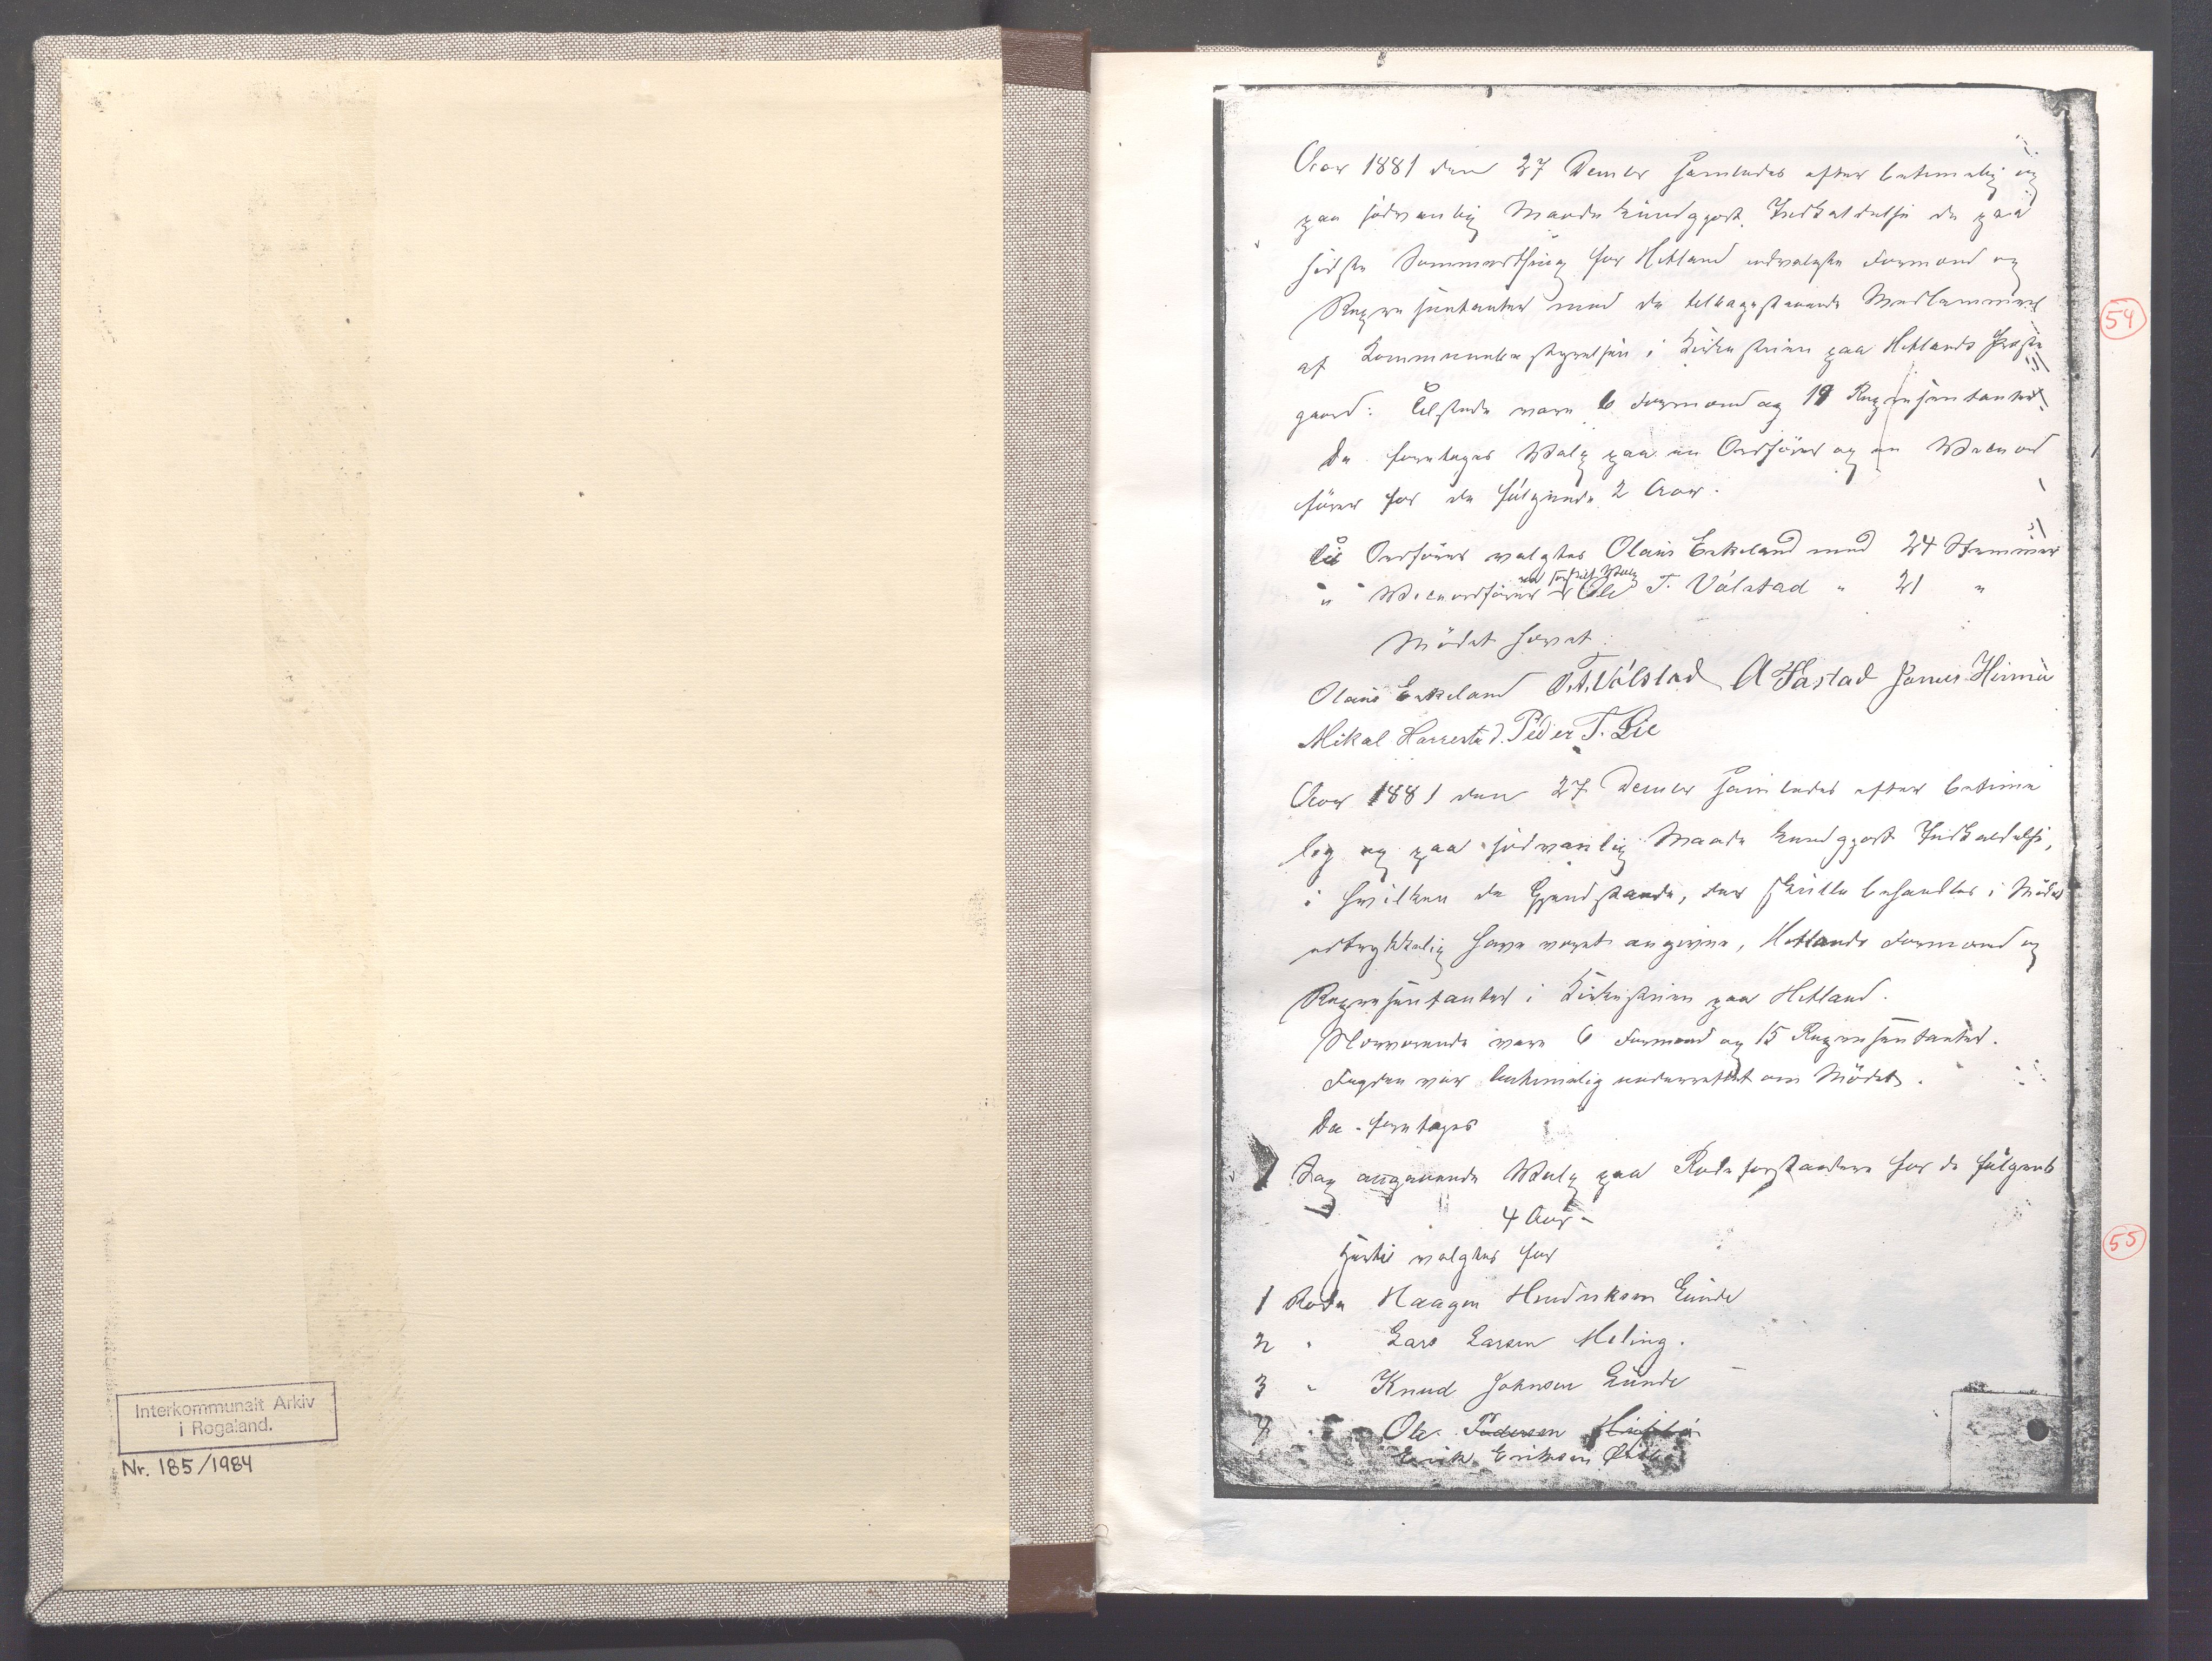 Interkommunalt Arkiv
i Rogaland.
Nr. 185/1984
Aar 1881 den 27 Decmbr samledes efter betimelig og
paa sædvanlig Maade kundgjort Indkaldelse de paa
sidste Sommerthing for Hetland udvalgte Formænd og
Repræsentanter med de tilbagestaaende Medlemmer
af Kommunebestyrelsen i Kirkestuen paa Hetlands Præste
gaard: Tilstede vare 6 Formænd og 19 Repræsentanter
Da foretoges Valg paa en Ordfører og en Viceord
fører for de følgende 2 Aar.
Til Ordfører valgtes Olaus Eskeland med 24 Stemmer
" " Viceordfører Ole T. Vålstad " 21 "
Mødet hævet.
Olaus Eskeland O.T. Vålstad A Hastad Jonas Hinna
Mikal Harrestad. Peder T. Lie
54
Aar 1881 den 27 Decmbr samledes efter betime
lig og paa sædvanlig Maade kundgjort Indkaldelse,
i hvilken de Gjenstande, der skulle behandles i Mødet
udtrykkelig have været angivne, Hetlands Formænd og
Repræsentanter i Kirkestuen paa Hetland.
Nærværende vare 6 Formænd og 15 Repræsentanter.
Fogden var betimelig underrettet om Mødet.
Da foretoges
1 Sag angaaende Valg paa Rodeforstandere for de følgende
4 Aar -
Hertil valgtes for
1 Rode Haagen Hendriksen Lunde
2 " Lars Larsen Meling.
3 " Knud Johnsen Lunde
4 " Ole Pedersen
Erik Eriksen
55